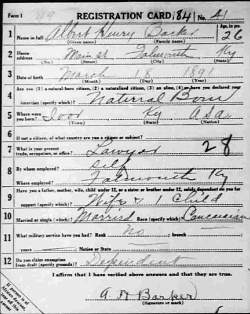 Form 1 REGISTRATION CARD 841 No. 41
1 Name in full Albert Henry Barker Age, in yrs. 26
(Given name) (Family name)
2 Home address Main St Falmouth Ky
(No.) (Street) (City) (State)
3 Date of birth March
(Month) (Day) (Year)
4 Are you (1) a natural-born citizen, (2) a naturalized citizen, (3) an alien, (4) or have you declared your intention (specify which)? Natural Born
5 Where were you born? Ky USA
(Town) (State) (Nation)
6 If not a citizen, of what country are you a citizen or subject?
7 What is your present trade, occupation, or office? Lawyer 28
8 By whom employed?
Where employed? Falmouth Ky
9 Have you a father, mother, wife, child under 12, or a sister or brother under 12, solely dependent on you for support (specify which)? Wife & 1 Child
10 Married or single (which)? Married Race (specify which)? Caucasian
11 What military service have you had? Rank No branch
years Nation or State
12 Do you claim exemption from draft (specify grounds)? Dependent
I affirm that I have verified above answers and that they are true.
A H Barker
(Signature or mark)